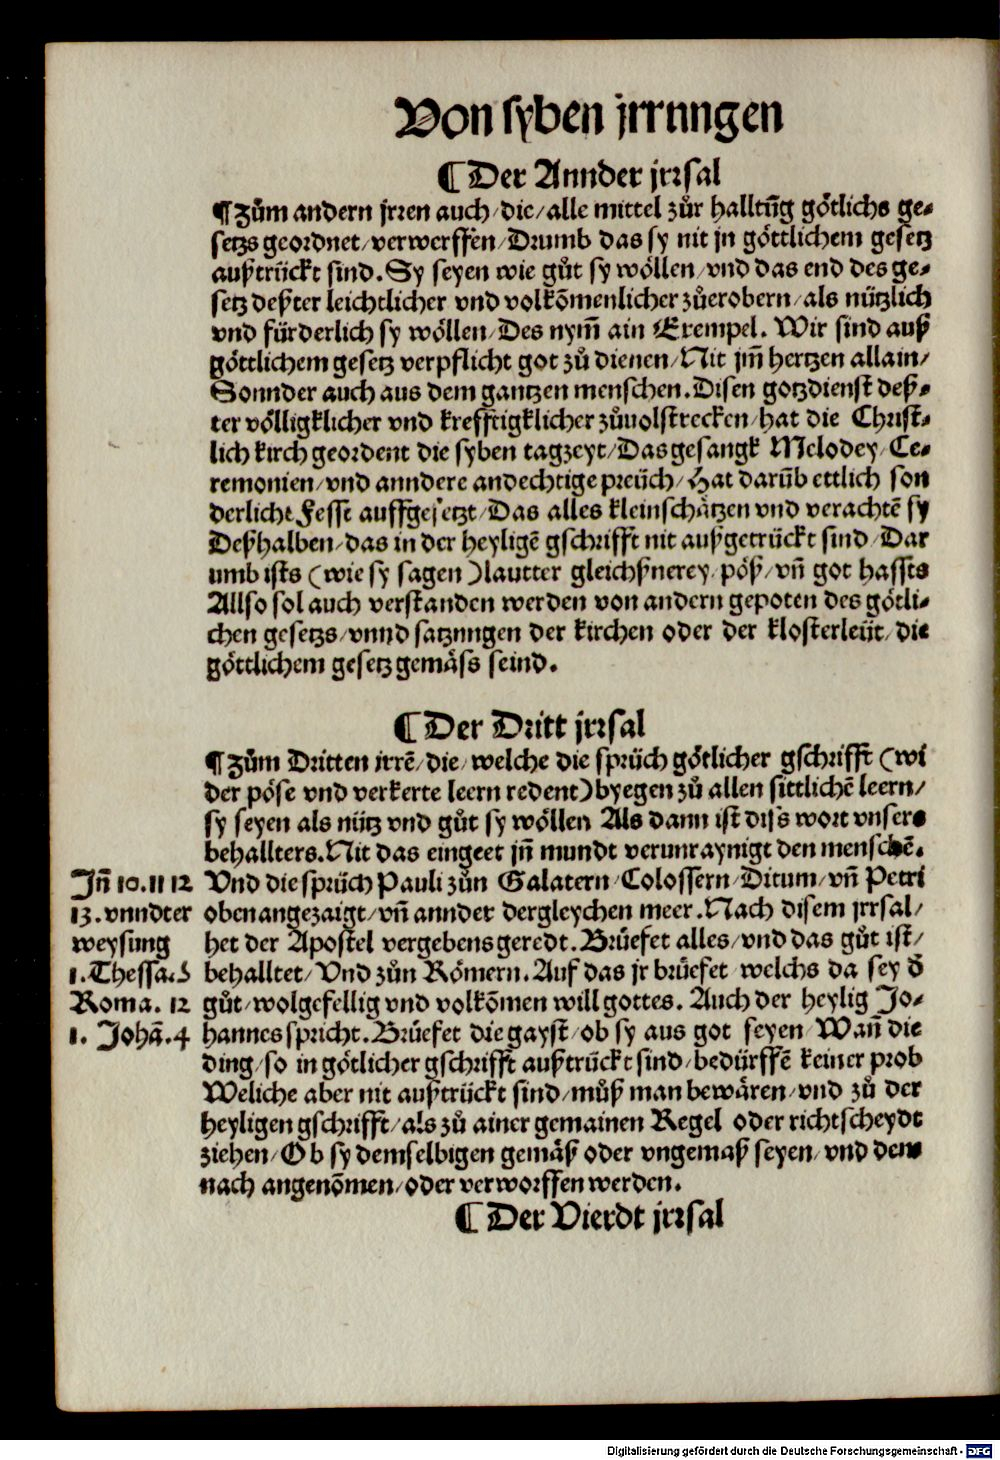 Von syben jrrnngen
¶ Der Annder jrrsal
¶ Zům andern jrren auch/die/alle mittel zůr halltūg götlichs ge-
setzs geordnet/verwerffen/Drumb das sy nit jn göttlichem gesetz
außtrückt sind. Sy seyen wie gůt sy wöllen/vnd das end des ge-
setz deßter leichtlicher vnd volkōmenlicher zůerobern/als nützlich
vnd fürderlich sy wöllen/Des nym̄ ain Exempel. Wir sind auß
göttlichem gesetz verpflicht got zů dienen/Nit jm̄ hertzen allain/
Sonnder auch aus dem gantzen menschen. Disen gotzdienst deß-
ter völligklicher vnd krefftigklicher zůuolstrecken/hat die Christ-
lich kirch geordent die syben tagzeyt/Das gesangk Melodey/Ce-
remonien/vnd anndere andechtige preüch/Hat darūb ettlich son
derliche Fesse auffgesetzt/Das alles kleinschätzen vnd verachtē sy
Deßhalben/das in der heyligē gschrifft nit außgetrückt sind/Dar
umb ists (wie sy sagen) lautter gleichßnerey/pöß/vn̄ got hassts
Allso sol auch verstanden werden von andern gepoten des götli-
chen gesetzs/vnnd satznngen der kirchen oder der klosterleüt/die
göttlichem gesetz gemäss seind.
¶ Der Dritt jrrsal
¶ Zům Dritten jrrē/die/welche die sprüch götlicher gschrifft (wi
der pöse vnd verkerte leern redent) byegen zů allen sittlichē leern/
sy seyen als nütz vnd gůt sy wöllen Als dann ist diss wort vnsers
behallters. Nit das eingeet jn̄ mundt verunraynigt den menschē.
Vnd die sprüch Pauli zůn Galatern/Colossern/Ditum/vn̄ Petri
oben angezaigt/vn̄ annder dergleychen meer. Nach disem jrrsal/
het der Apostel vergebens geredt. Brüefet alles/vnd das gůt ist/
behalltet/Vnd zůn Römern. Auf das jr brüefet welchs da sey d̄
gůt/wolgefellig vnd volkōmen will gottes. Auch der heylig Jo-
hannes spricht. Brüefet die gayst/ob sy aus got seyen/Wan̄ die
ding/so in götlicher gschrifft außtrückt sind/bedürffē keiner prob
Weliche aber nit außtrückt sind/můß man bewären/vnd zů der
heyligen gschrifft/als zů ainer gemainen Regel oder richtscheydt
ziehen/Ob sy demselbigen gemäß oder vngemaß seyen/vnd dem
nach angenōmen/oder verworffen werden.
¶ Der Vierdt jrrsal
Jn̄ 10. 11 12
13. vnndter
weysung
1. Thessa. 5
Roma. 12
1. Johā. 4
Digitalisierung gefördert durch die Deutsche Forschungsgemeinschaft - DFG